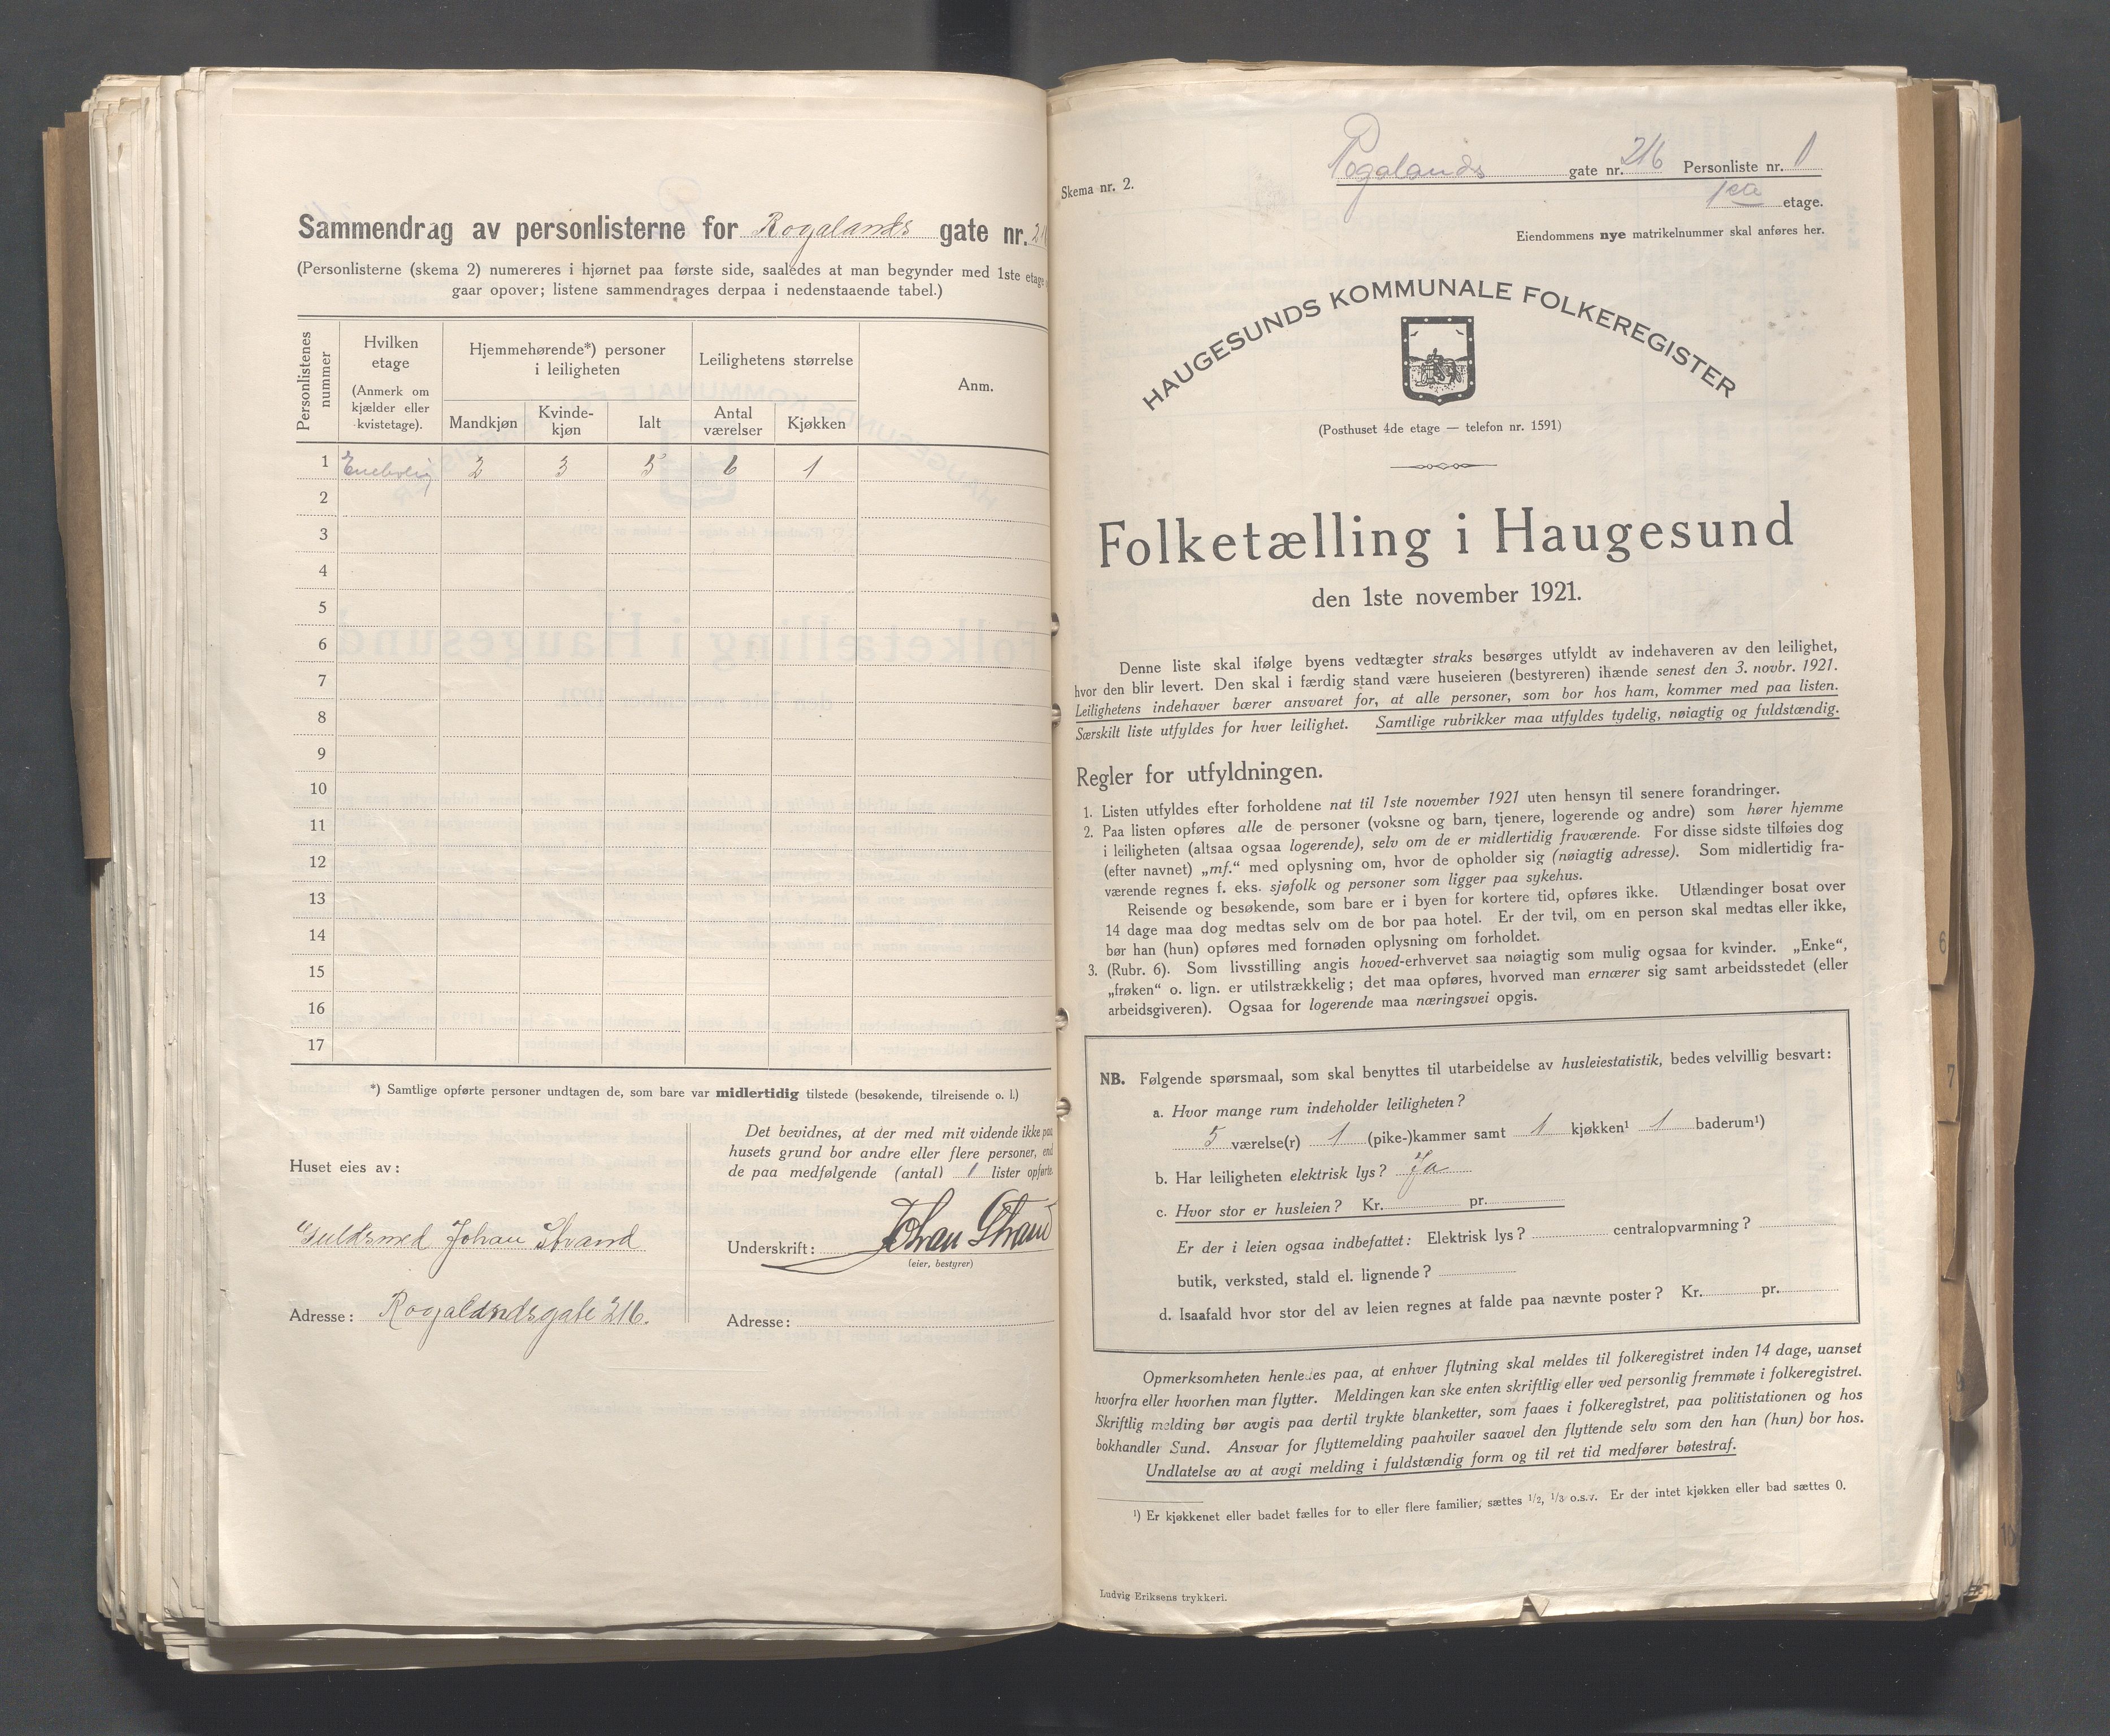 Sammendrag av personlisterne for Rogalands gate nr. 21
(Personlisterne (skema 2) numereres i hjørnet paa første side, saaledes at man begynder med 1ste etage
gaar opover; listene sammendrages derpaa i nedenstaaende tabel.)
Personlistenes nummer
Hvilken etage
(Anmerk om kjælder eller kvistetage).
Hjemmehørende*) personer i leiligheten
Leilighetens størrelse
Anm.
Mandkjøn Kvindekjøn Ialt Antal værelser Kjøkken
1 Enebolig 2 3 5 6 1
2
3
4
5
6
7
8
9
10
11
12
13
14
15
16
17
*) Samtlige opførte personer undtagen de, som bare var midlertidig tilstede (besøkende, tilreisende o. l.)
Huset eies av:
Guldsmed Johan Strand
Adresse: Rogalandsgate 216.
Det bevidnes, at der med mit vidende ikke paa
husets grund bor andre eller flere personer, end
de paa medfølgende (antal) 1 lister opførte.
Underskrift: Johan Strand
(eier, bestyrer)
Adresse:
Skema nr. 2.
Rogalands gate nr. 216 Personliste nr. 1
1ste etage.
Eiendommens nye matrikelnummer skal anføres her.
HAUGESUNDS KOMMUNALE FOLKEREGISTER
(Posthuset 4de etage — telefon nr. 1591)
Folketælling i Haugesund
den 1ste november 1921.
Denne liste skal ifølge byens vedtægter straks besørges utfyldt av indehaveren av den leilighet,
hvor den blir levert. Den skal i færdig stand være huseieren (bestyreren) ihænde senest den 3. novbr. 1921.
Leilighetens indehaver bærer ansvaret for, at alle personer, som bor hos ham, kommer med paa listen.
Særskilt liste utfyldes for hver leilighet. Samtlige rubrikker maa utfyldes tydelig, nøiagtig og fuldstændig.
Regler for utfyldningen.
1. Listen utfyldes efter forholdene nat til 1ste november 1921 uten hensyn til senere forandringer.
2. Paa listen opføres alle de personer (voksne og barn, tjenere, logerende og andre) som hører hjemme
i leiligheten (altsaa ogsaa logerende), selv om de er midlertidig fraværende. For disse sidste tilføies dog
(efter navnet) „mf.“ med oplysning om, hvor de opholder sig (nøiagtig adresse). Som midlertidig fra-
værende regnes f. eks. sjøfolk og personer som ligger paa sykehus.
Reisende og besøkende, som bare er i byen for kortere tid, opføres ikke. Utlændinger bosat over
14 dage maa dog medtas selv om de bor paa hotel. Er der tvil, om en person skal medtas eller ikke,
bør han (hun) opføres med fornøden oplysning om forholdet.
3. (Rubr. 6). Som livsstilling angis hoved-erhvervet saa nøiagtig som mulig ogsaa for kvinder. „Enke“,
„frøken“ o. lign. er utilstrækkelig; det maa opføres, hvorved man ernærer sig samt arbeidsstedet (eller
arbeidsgiveren). Ogsaa for logerende maa næringsvei opgis.
NB. Følgende spørsmaal, som skal benyttes til utarbeidelse av husleiestatistik, bedes velvillig besvart:
a. Hvor mange rum indeholder leiligheten?
5 værelse(r) 1 (pike-)kammer samt 1 kjøkken¹ 1 baderum¹)
b. Har leiligheten elektrisk lys? Ja
c. Hvor stor er husleien? Kr. pr.
Er der i leien ogsaa indbefattet: Elektrisk lys? centralopvarmning?
butik, verksted, stald el. lignende?
d. Isaafald hvor stor del av leien regnes at falde paa nævnte poster? Kr. pr.
Opmerksomheten henledes paa, at enhver flytning skal meldes til folkeregistret inden 14 dage, uanset
hvorfra eller hvorhen man flytter. Meldingen kan ske enten skriftlig eller ved personlig fremmøte i folkeregistret.
Skriftlig melding bør avgis paa dertil trykte blanketter, som faaes i folkeregistret, paa politistationen og hos
bokhandler Sund. Ansvar for flyttemelding paahviler saavel den flyttende selv som den han (hun) bor hos.
Undlatelse av at avgi melding i fuldstændig form og til ret tid medfører bøtestraf.
¹) Er kjøkkenet eller badet fælles for to eller flere familier, sættes 1/2, 1/3 o.s.v. Er der intet kjøkken eller bad sættes 0.
Ludvig Eriksens trykkeri.
6
7
10